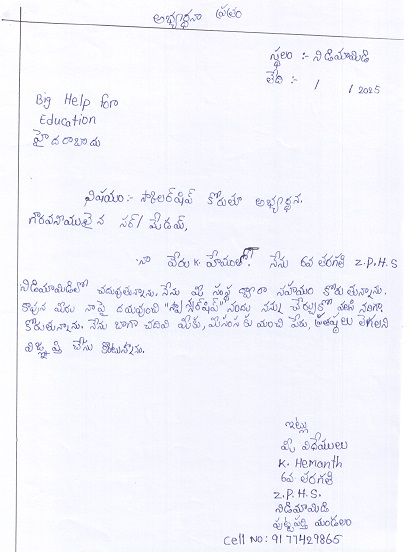 అభ్యర్థనా పత్రం
స్థలం :- నిడిమామిడి
తేది :- / / 2025
Big Help for
Education
హైదరాబాదు
విషయం :- స్కాలర్‌షిప్ కోరుతూ అభ్యర్థన.
గౌరవనీయులైన సర్/మేడమ్,
నా పేరు K. హేమంత్. నేను 6వ తరగతి Z.P.H.S
నిడిమామిడిలో చదువుతున్నాను. నేను మీ సంస్థ ద్వారా సహాయం కోరుతున్నాను.
కావున మీరు నాపై దయవుంచి "స్కాలర్‌షిప్" నందు నన్ను చేర్చుకో
కోరుతున్నాను. నేను బాగా చదివి మీకు, మీ సంస్థకు మంచి పేరు, ప్రతిష్టలు
విజ్ఞప్తి చేసు కొంటున్నాను.
ఇట్లు
మీ విధేయులు
K. Hemanth
6వ తరగతి
Z.P.H.S.
నిడిమామిడి
పుట్టపర్తి మండలం
Cell NO: 9177429865